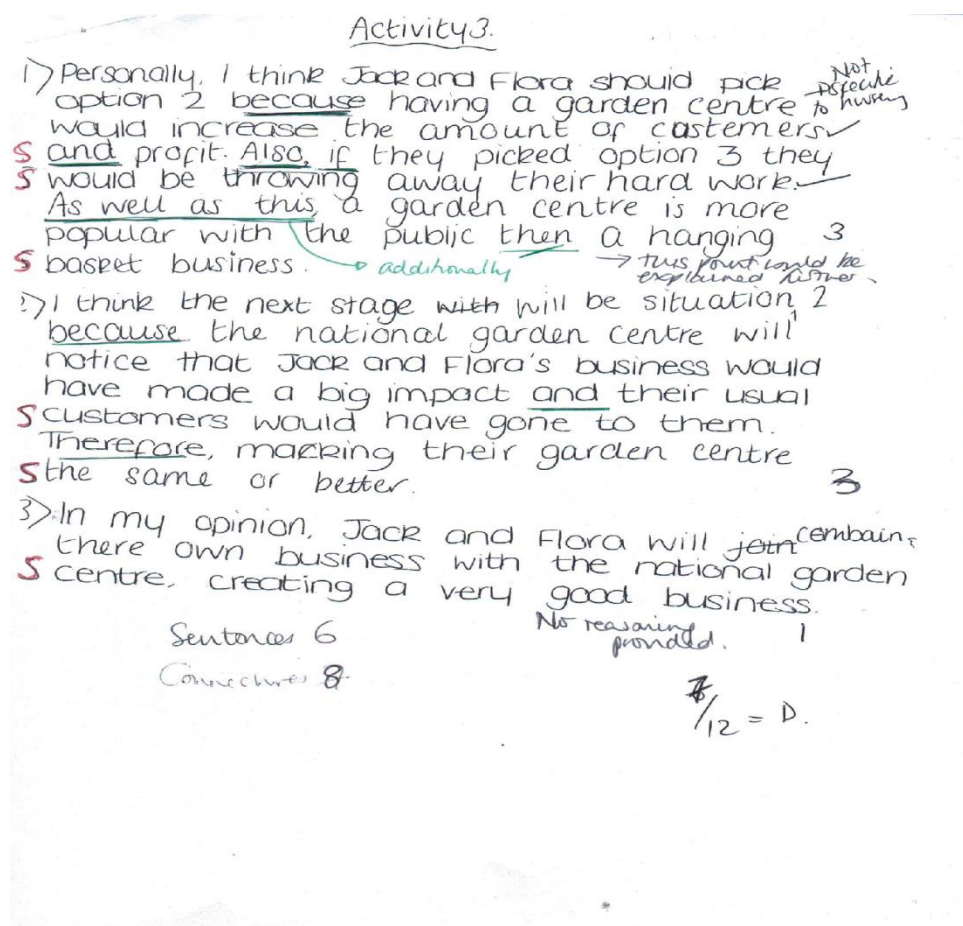 Activity 3.
1) Personally, I think Jack and Flora should pick Not
option 2 because having a garden centre specific
would increase the amount of castemers ✓ to nursery
S and profit. Also, if they picked option 3 they
S would be throwing away their hard work.
As well as this, a garden centre is more
popular with the public then a hanging 3
S basket business. additionally → this point could be
explained further.
2) I think the next stage with will be situation 2
because the national garden centre will
notice that Jack and Flora's business would
have made a big impact and their usual
S customers would have gone to them.
Therefore, making their garden centre
S the same or better. 3
3) In my opinion, Jack and Flora will join combain
there own business with the national garden
S centre, creating a very good business.
Sentences 6 No reasoning
provided. 1
Connectives 8
/12 = D.